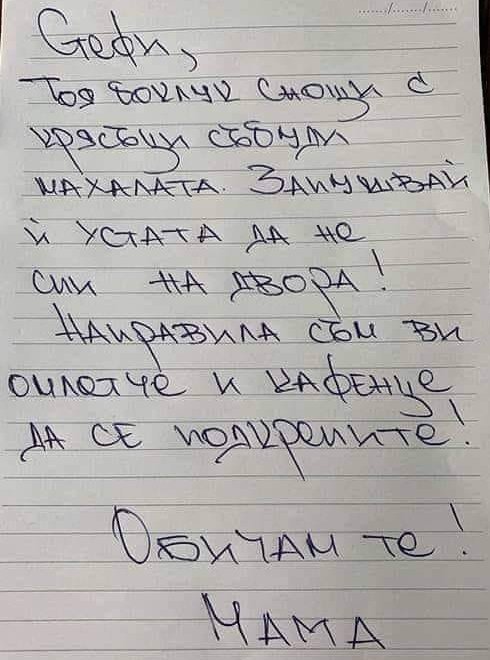 Стефи,
Тоя боклук снощи с
крясъци събуди
махалата. Запушвай
ѝ устата да не
сш на двора!
Направила съм ви
омлетче и кафенце
да се подкрепите!
Обичам те!
Мама